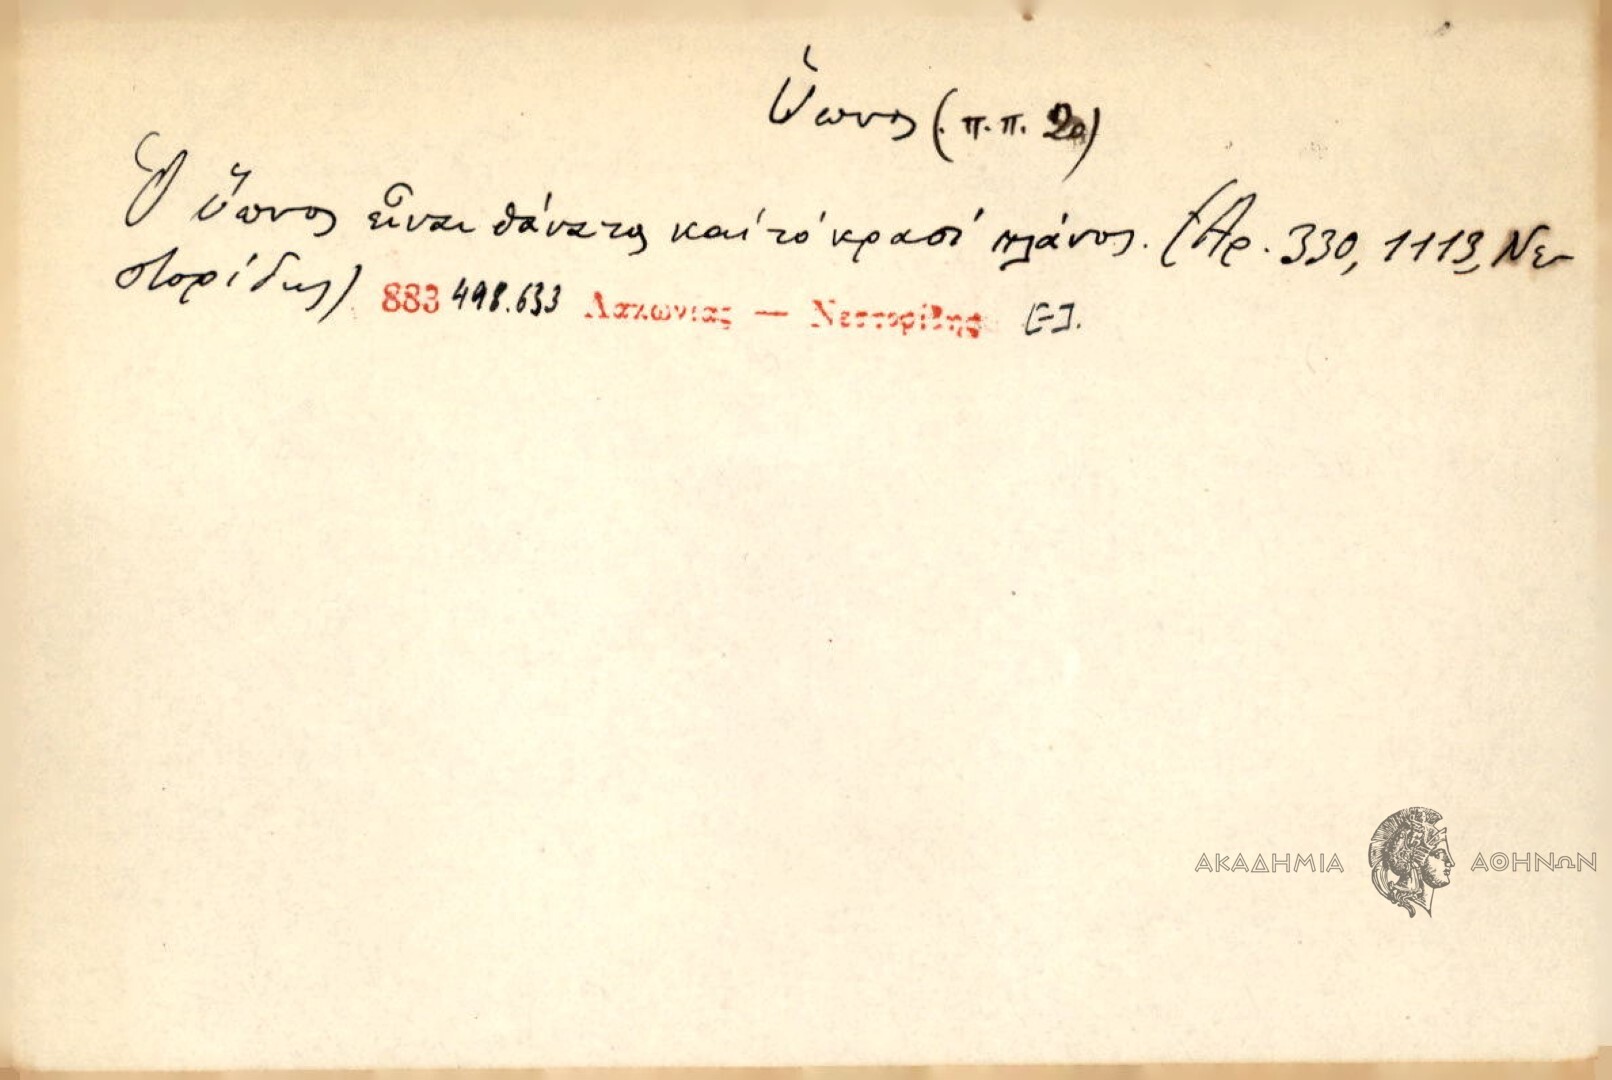 Ὕπνος (π.π. 20)
Ὁ ὕπνος εἶναι θάνατος καί τό κρασί πλάνος. (Ἀρ. 330, 1113, Νε-
στορίδης) 883 498.633 Λακωνίας — Νεστορίδης [-].
ΑΚΑΔΗΜΙΑ ΑΘΗΝΩΝ